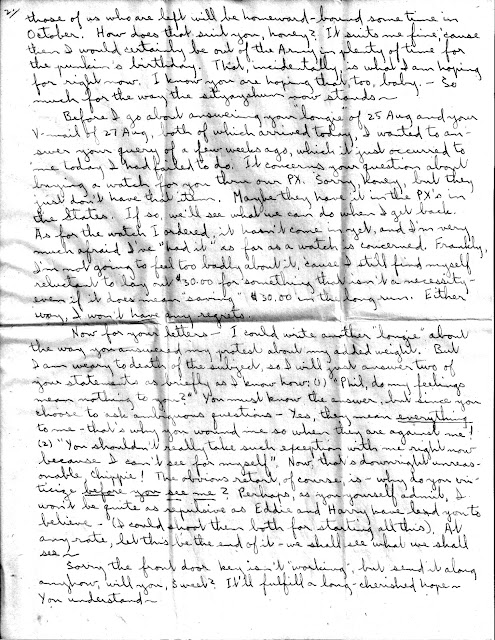 2/
those of us who are left will be homeward-bound some time in
October. How does that suit you, honey? It suits me fine, 'cause
then I would certainly be out of the Army in plenty of time for
the punkin's birthday. That, incidentally, is what I am hoping
for right now. I know you are hoping that, too, baby. - So
much for the way the sitzayshun now stands ~
Before I go about answering your longie of 25 Aug and your
V-mail of 27 Aug, both of which arrived today, I wanted to an-
swer your query of a few weeks ago, which it just occurred to
me today I had failed to do. It concerns your question about
buying a watch for you thru our PX. Sorry, honey, but they
just don't have that item. Maybe they have it in the PX's, in
the States. If so, we'll see what we can do when I get back.
As for the watch I ordered, it hasn't come in yet, and I'm very
much afraid I've "had it" as far as a watch is concerned. Frankly,
I'm not going to feel too badly about it, cause I still find myself
reluctant to lay out $30.00 for something that isn't a necessity -
even if it does mean "saving" $30.00 in the long run. Either
way, I won't have any regrets.
Now for your letters - I could write another "longie" about
the way you answered my protest about my added weight. But
I am weary to death of the subject, so I will just answer two of
your statements as briefly as I know how: (1) "Phil, do my feelings
mean nothing to you?" You must know the answer, but since you
choose to ask ambiguous questions - Yes, they mean everything
to me - that's why you wound me so when they are against me!
(2) "You shouldn't really take such exception with me right now
because I can't see for myself". Now, that's downright unreas-
onable, Chippie! The obvious retort, of course, is - why do you cri-
ticize before you see me? Perhaps, as you yourself admit, I
won't be quite as repulsive as Eddie and Harry have lead you to
believe - (I could shoot them both for starting all this). At
any rate, let this be the end of it - we shall see what we shall
see ~
Sorry the front door key isn't "working", but send it along
anyhow, will you, Sweet? It'll fulfill a long-cherished hope ~
You understand ~